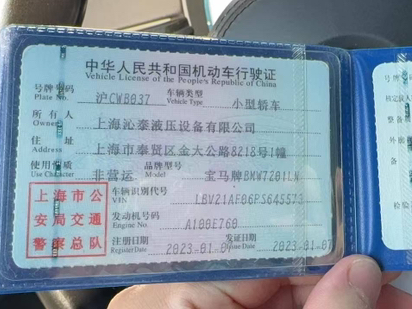 中华人民共和国机动车行驶证
Vehicle License of the People's Republic of China
号牌号码 沪CWB037 车辆类型 小型轿车
Plate No. Vehicle Type
所有人 上海沁泰液压设备有限公司
Owner
住址 上海市奉贤区金大公路8218号1幢
Address
使用性质 非营运 品牌型号 宝马牌BMW7201LN
Use Character
上海市公
安局交通
警察总队
车辆识别代号
VIN
发动机号码
Engine No.
注册日期 发证日期 2023-01-07
Register Date Issue Date